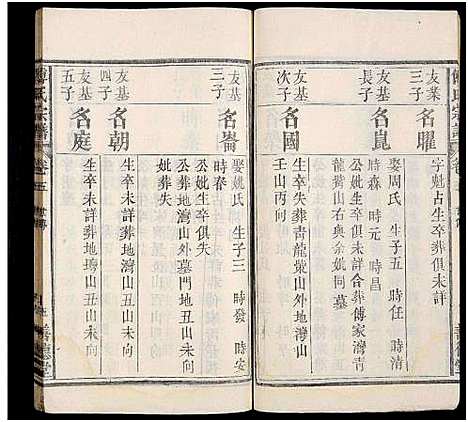 友業
三子
名曜
字魁占生卒葬俱未詳
友基
長子
名崑
娶周氏 生子五 時任 時清
時森 時元 時昌
公妣生卒俱未詳合葬傅家灣青
龍嘴山右奥余妣同墓
友基
次子
名國
生卒失葬青龍嘴山外地灣山
壬山丙向
友基
三子
名崙
娶姚氏 生子三 時發 時安
時春
公妣生卒俱失
公葬地灣山外墓門地丑山未向
妣葬失
友基
四子
名朝
生卒未詳葬地灣山丑山未向
友基
五子
名庭
生卒未詳葬地灣山丑山未向
傅氏宗譜
卷五